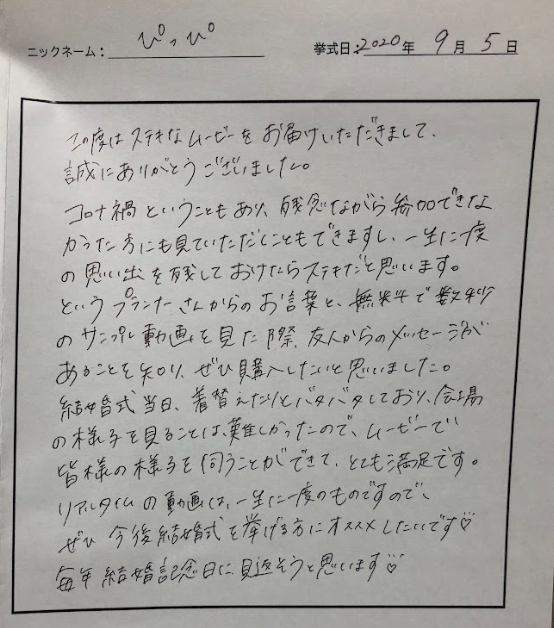 ニックネーム： ぴっぴ 挙式日：2020年 9月 5日
この度はステキなムービーをお届けいただきまして、
誠にありがとうございました。
コロナ禍ということもあり、残念ながら参加できな
かった方にも見ていただくこともできますし、一生に一度
の思い出を残しておけたらステキだと思います。
というプランナーさんからのお言葉と、無料で数秒
のサンプル動画を見た際、友人からのメッセージが
あることを知り、ぜひ購入したいと思いました。
結婚式当日、着替えたりとバタバタしており、会場
の様子を見ることは、難しかったので、ムービーで
皆様の様子を伺うことができて、とても満足です。
リアルタイムの動画は、一生に一度のものですので、
ぜひ今後結婚式を挙げる方にオススメしたいです♡
毎年結婚記念日に見返そうと思います♡